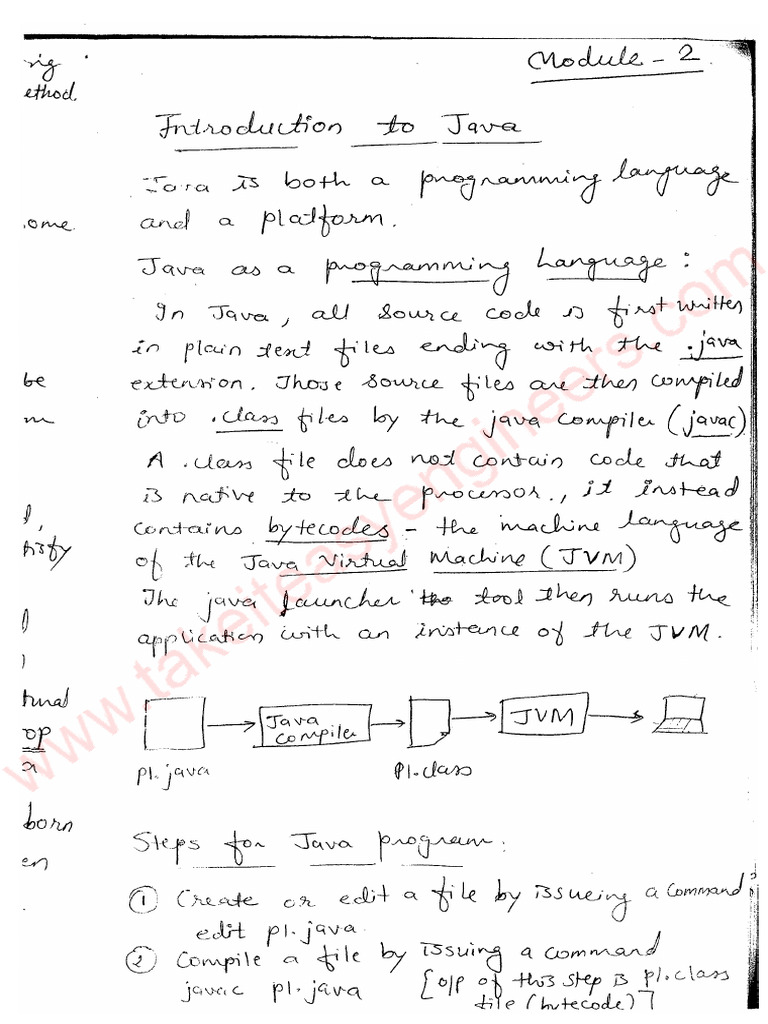 ethod.
ome
be
m
born
en
Module - 2
Introduction to Java
Java is both a programming language
and a platform.
Java as a programming Language :
In Java, all source code is first written
in plain text files ending with the .java
extension. Those source files are then compiled
into .class files by the java compiler (javac)
A .class file does not contain code that
is native to the processor., it instead
contains bytecodes - the machine language
of the Java Virtual Machine (JVM)
The java launcher tool then runs the
application with an instance of the JVM.
Java
Compiler
JVM
p1.java
p1.class
Steps for Java program:
① Create or edit a file by issueing a command
edit p1.java
② Compile a file by issuing a command
javac p1.java [o/p of this step is p1.class
file (bytecode)]
www.takeiteasyengineers.com